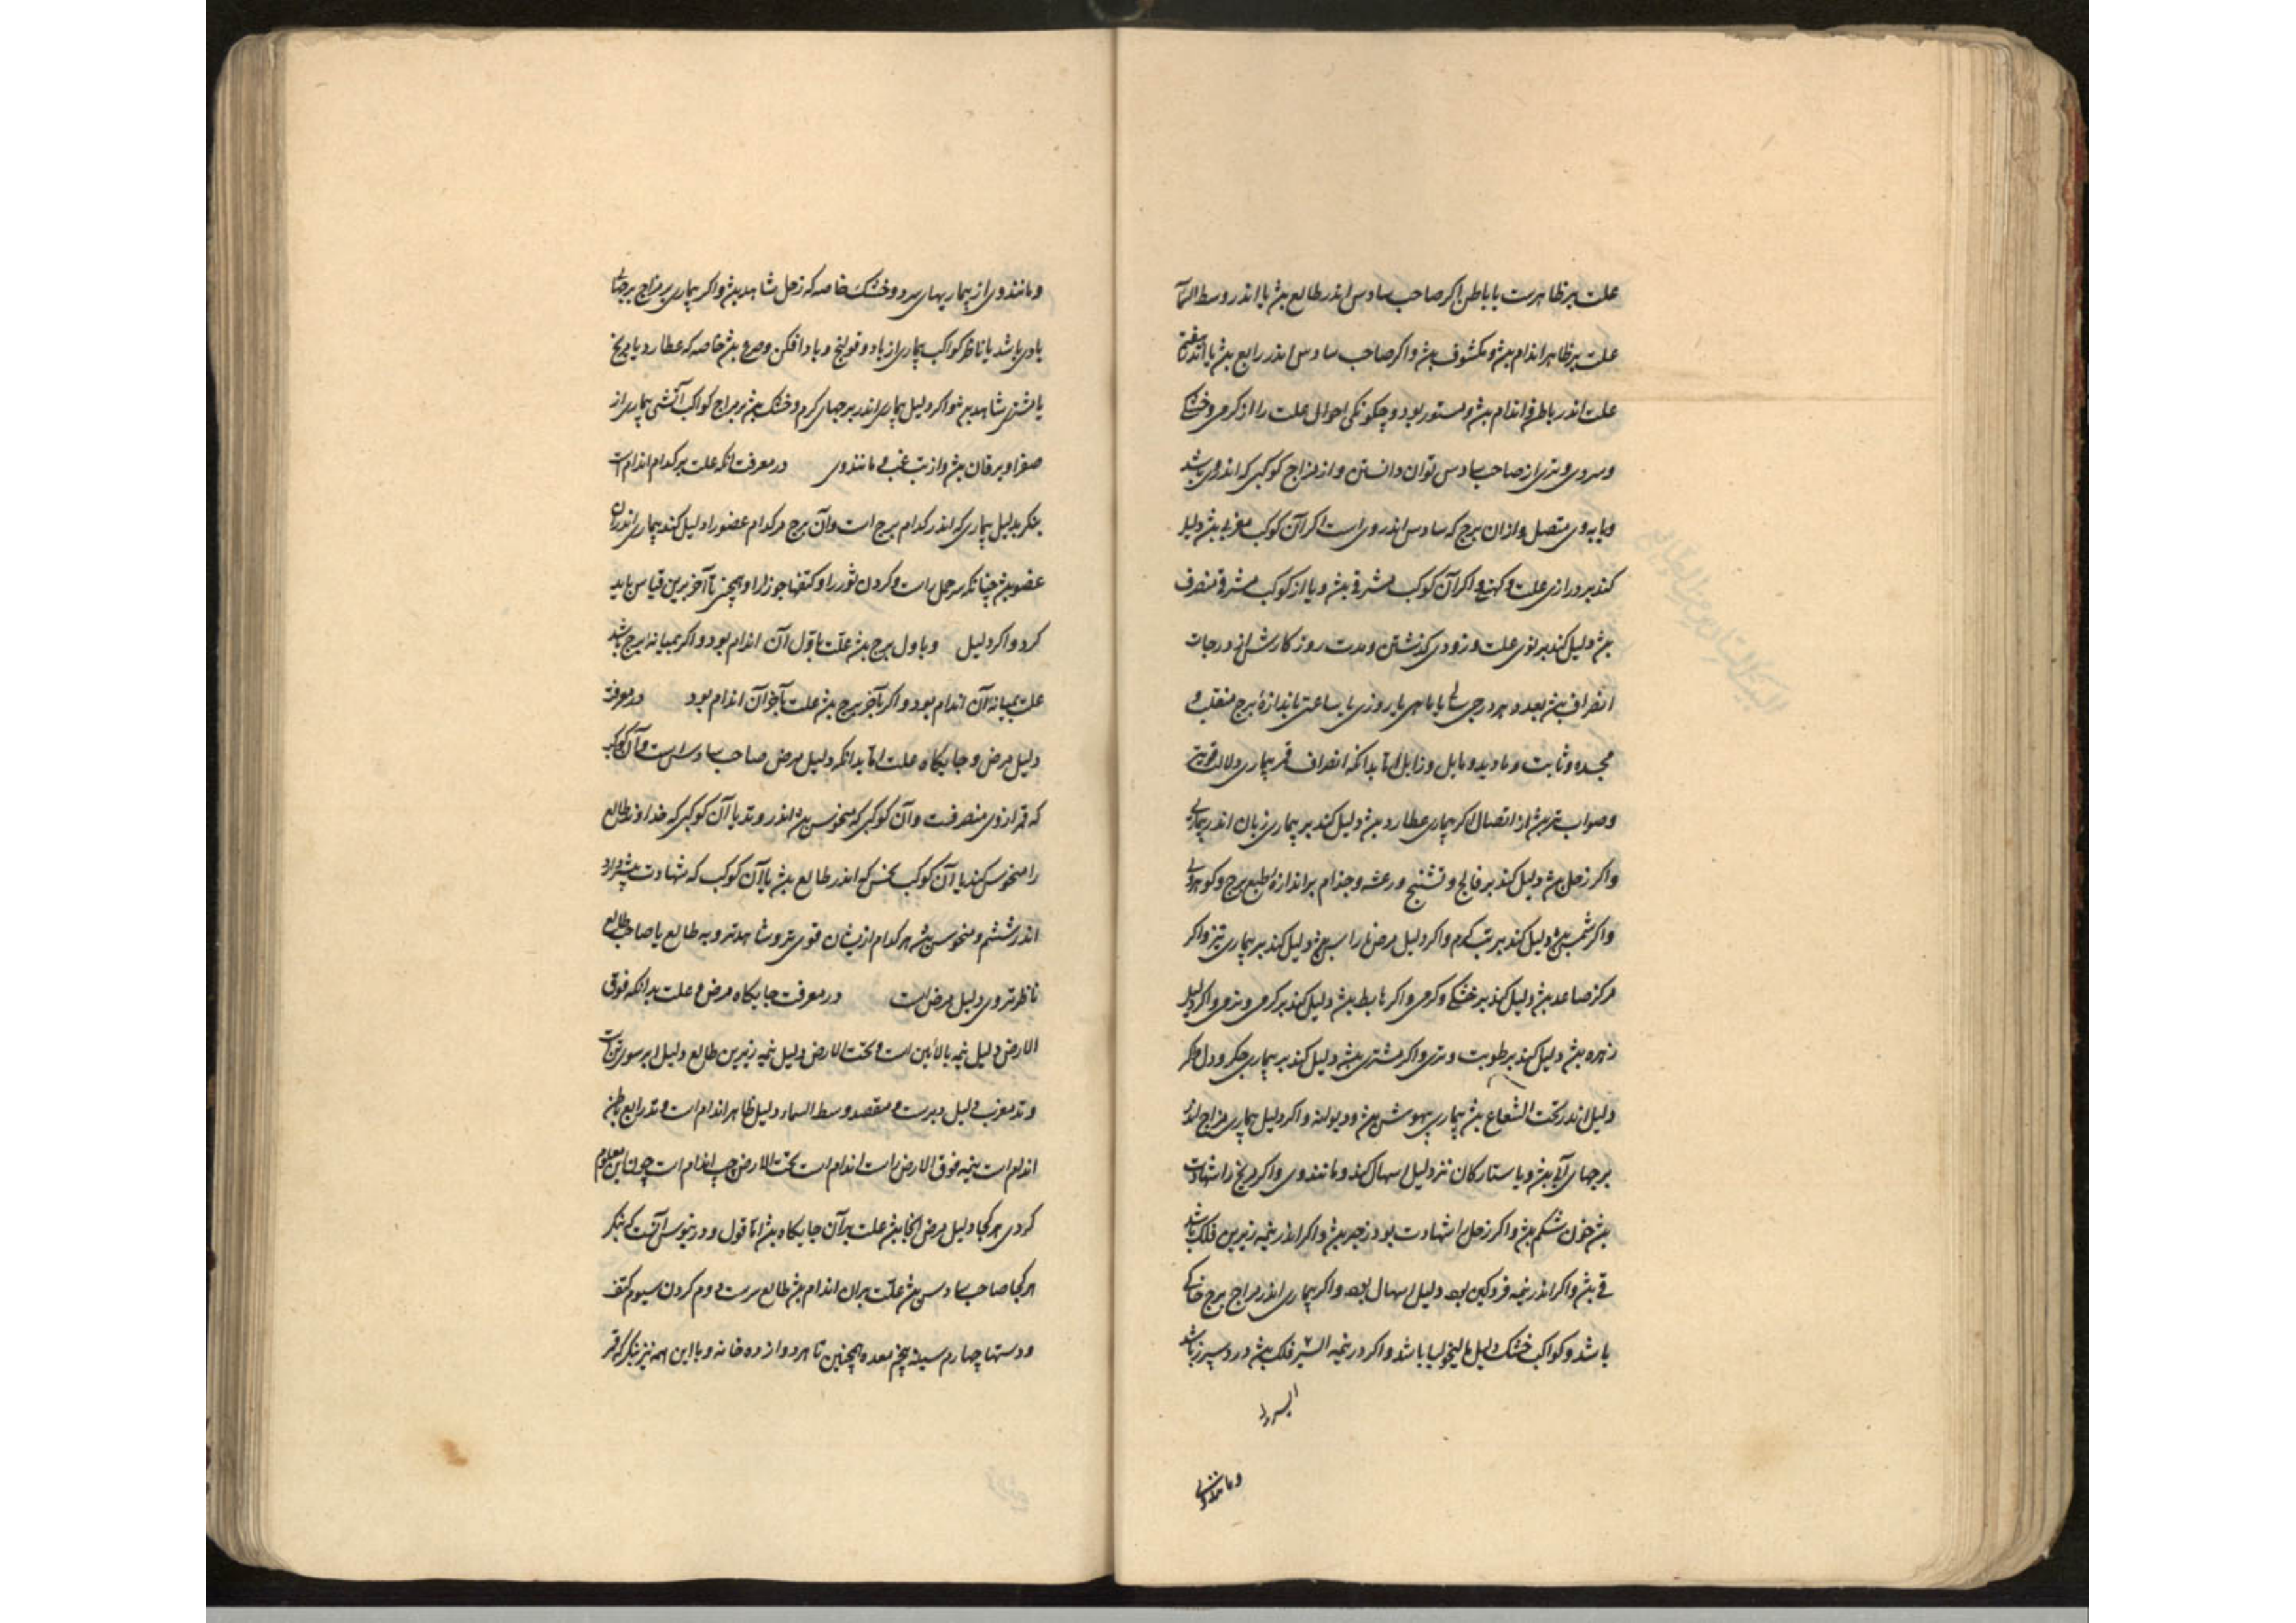 علت بر ظاهرست یا باطن اکر صاحب سادس اندر طالع بش یا اندر وسط السمآ
علت بر ظاهر اندام بش و مکشوف بش و اکر صاحب سادس اندر رابع بش یا اندر
علت اندر باطن اندام بش و مستور بود و چکونکی احوال علت را از کرمی و خشکی
و سردی و تری از صاحب سادس توان دانستن و از مزاج کوکبی که اندر وی باشد
و یا بوی متصل و ازان برج که سادس اندر ویست اکر آن کوکب مغربی بش دلیل
کند بر درازی علت و کهنی و اکر آن کوکب مشرقی بش و یا از کوکب مشرقی منصرف
بش دلیل کند بر نوی علت و زودی کذشتن و مدت روز کارش از درجات
انصراف بش بعدد هر درجی سالی یا ماهی یا روزی یا ساعتی باندازهٔ برج منقلب و
مجسده و ثابت و مایل و زایل اما بدانکه انصراف قمر بیماری دلالت
و صواب تر بش از اتصال اکر بیماری عطارد بش دلیل کند بر بیماری زبان اندر
و اکر زحل بش دلیل کند بر فالج و تشنج و رعشه و جذام بر اندازهٔ طبع برج و کوهر وی
و اکر شمس بش دلیل کند بر تب کرم و اکر دلیل مرض بش دلیل کند بر بیماری تیز و اکر
مرکز صاعد بش دلیل کند بر خشکی و کرمی و اکر هابط بش دلیل کند بر کرمی و تری و اکر دلیل
زهره بش دلیل کند بر رطوبت و تری و اکر مشتری بش دلیل کند بر بیماری جکر و دل و اکر
دلیل اندر تحت الشعاع بش بیماری بیهوشی بش و دیوانه و اکر دلیل بیماری مزاج اندر
برجهای آبی بش و با ستارکان تر دلیل اسهال کند و مانند وی و اکر مریخ را شهادت
بش خون شکم بش و اکر زحل را شهادت بود زحیر بش و اکر اندر نیمه زیرین فلک باشد
قی بش و اکر اندر نیمه فرودکین بود دلیل اسهال بود و اکر بیماری اندر مزاج برج خاکی
باشد و کواکب خشک دلیل مالیخولیا باشد و اکر در نیمه فلک بش درد سپرز باشد
و مانند وی
و مانند وی از بیماریهای سرد و خشک خاصه که زحل شاهد بش و اکر بیماری بر مزاج برجهای
بادی باشد یا ناظر کواکب بیماری از باد و قولنج و باد افکن و صرع بش خاصه که عطارد یا مریخ
یا مشتری شاهد بش و اکر دلیل بیماری اندر برجهای کرم و خشک بش بر مزاج کواکب آتشی بیماری از
صفرا و یرقان بش و از تب غب و مانند وی در معرفت انکه علت بر کدام اندام است
بنکر بدلیل بیماری که اندر کدام برج است و آن برج مر کدام عضو را دلیل کند بیماری اندران
عضو بش چنانکه سر حمل راست و کردن ثور را و کتفها جوزا را و همچنین تا آخر برین قیاس باید
کرد و اکر دلیل وبا ول برج بش علت باول آن اندام بود و اکر بمیانه برج باشد
علت بمیانه آن اندام بود و اکر بآخر برج بش علت بآخر آن اندام بود در معرفت
دلیل مرض و جایکاه علت اما بدانکه دلیل مرض صاحب سادس است و آن کوکب
که قمر ازوی منصرفست و آن کوکبی که منحوس بش اندر وتد یا آن کوکبی که خداوند طالع
را منحوس کند یا آن کوکب نحس که اندر طالع بش یا آن کوکب که شهادت بیشتر دارد
اندر ششم و منحوس بش هر کدام ازیشان قوی تر و شاهدتر و به طالع یا صاحب طالع
ناظرتر وی دلیل مرض است در معرفت جایکاه مرض و علت بدانکه فوق
الارض دلیل نیمه بالائین است و تحت الارض دلیل نیمه زیرین طالع دلیل
و تد مغرب دلیل دبرست و مقعد و وسط السماء دلیل ظاهر اندام است و تد رابع باطن
اندام است نیمه فوق الارض راست اندام است تحت الارض چپ اندام است چون این معلوم
کردی هر کجا دلیل مرض انجا بش علت بر آن جایکاه بش اما قول آنست که بنکر
هر کجا صاحب سادس بش علت بران اندام بش طالع سرست دوم کردن سیوم کتف
و دستها چهارم سینه پنجم معده همچنین تا هر دوازده خانه و با این همه نیز بنکر که قمر